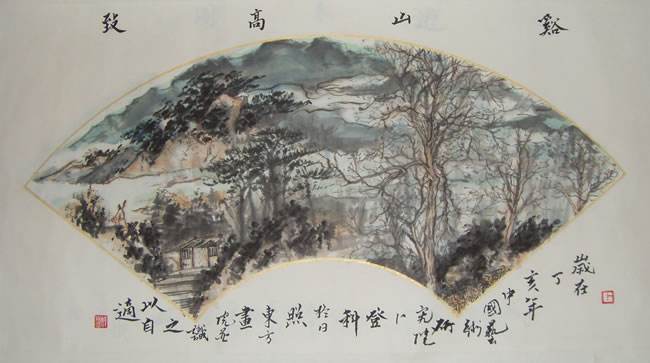 谿山高致
歲在
丁
亥年
中
國藝
術
研
究院
登
科
於日
照
東方
畫
識
之
以自
適